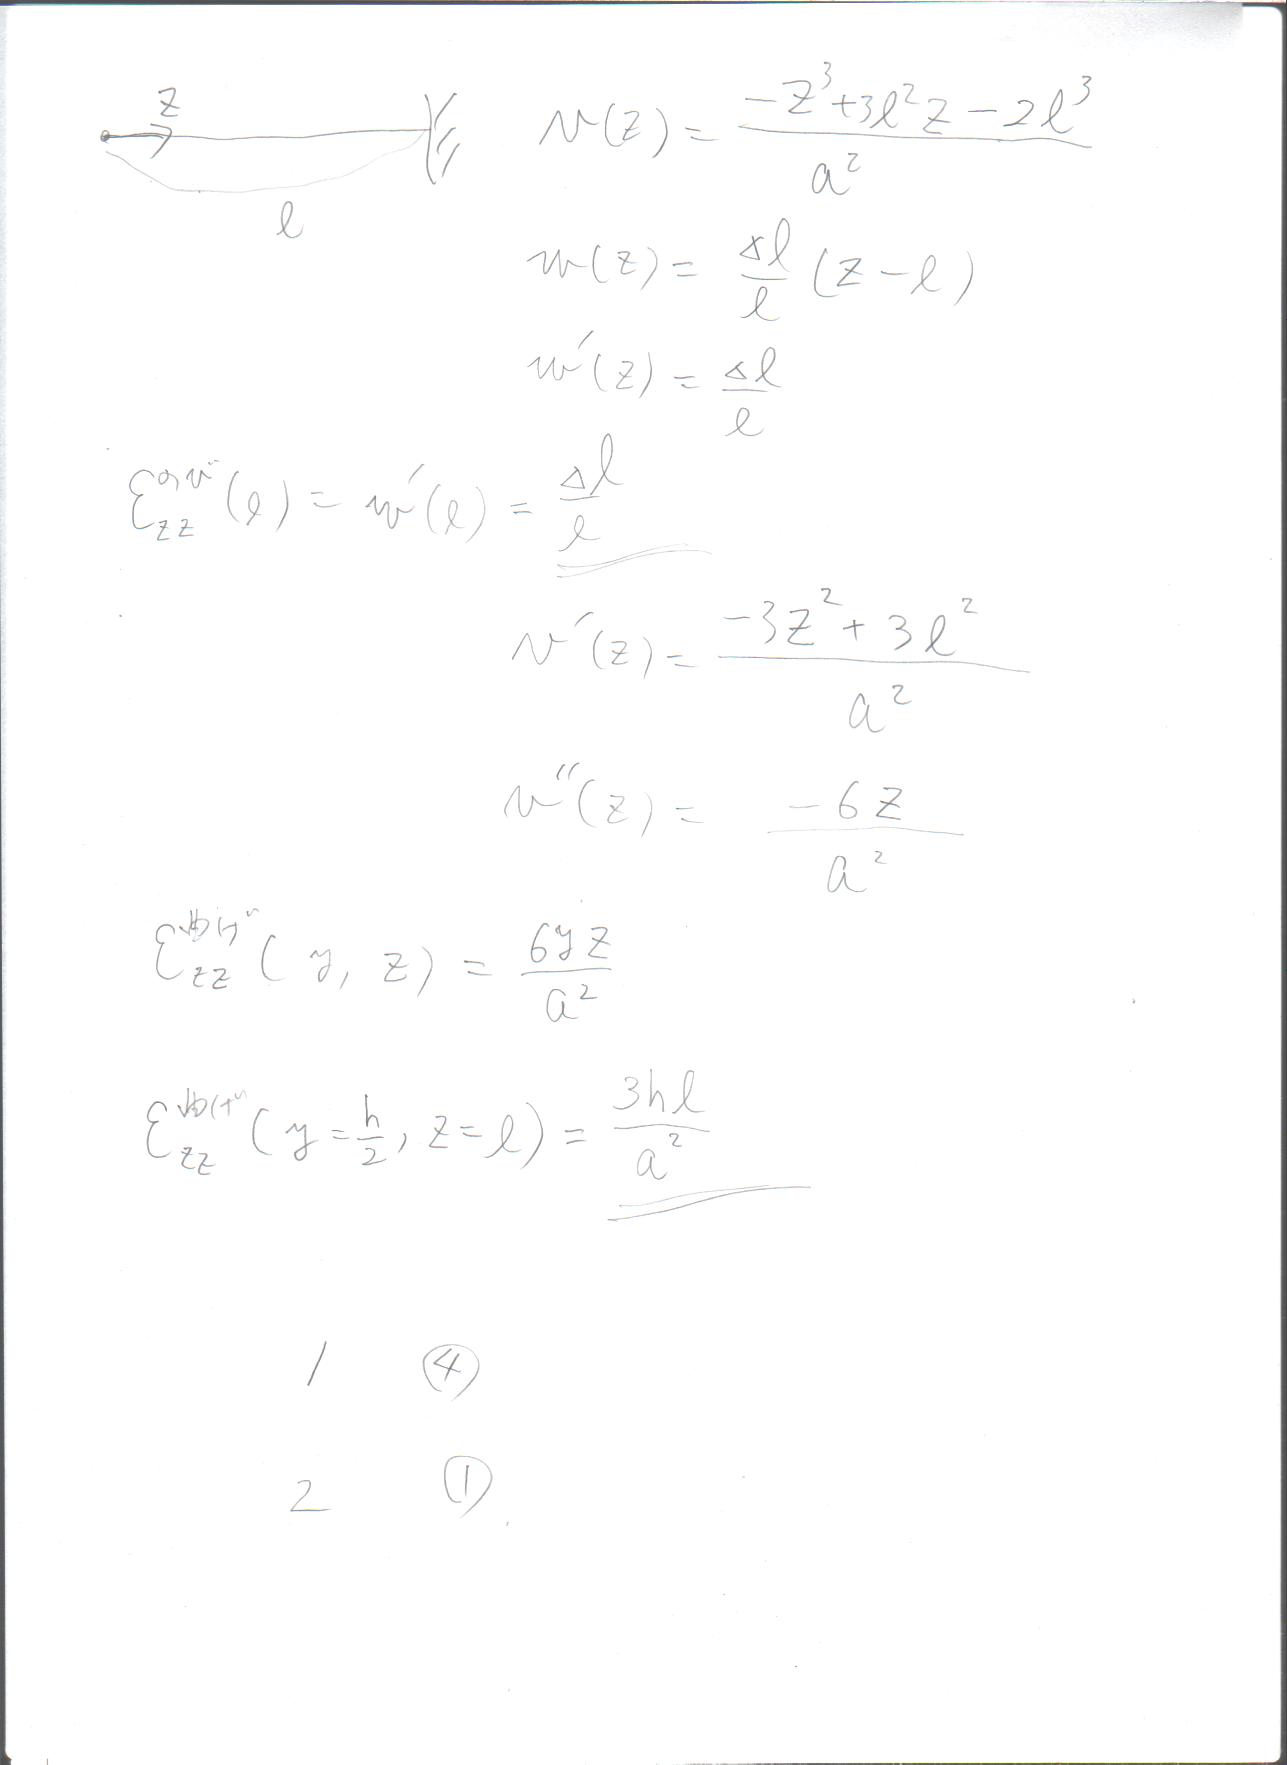 z
l
v(z) = (-z³+3l²z-2l³)/a²
w(z) = Δl/l (z-l)
w′(z) = Δl/l
(l) = w′(l) = Δl/l
v′(z) = (-3z²+3l²)/a²
v″(z) = -6z/a²
(y, z) = 6yz/a²
(y=h/2, z=l) = 3hl/a²
1 ④
2 ①